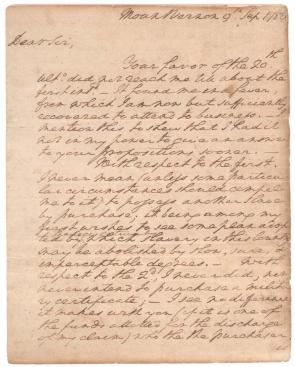 Mount Vernon 9th Sep. 1786
Dear Sir,
Your favor of the 20th
ulto. did not reach me till about the
first inst. – It found me in a fever,
from which I am now but sufficiently
recovered to attend to business. – I
mention this to shew that I had it
not in my power to give an answer
to your propositions sooner.
With respect to the first.
I never mean (unless some particu-
lar circumstances should compel
me to it) to possess another slave
by purchase; it being among my
first wishes to see some plan adop-
ted by which slavery in this Country
may be abolished by slow, sure, &
imperceptable degrees. – With
respect to the 2d. I never did, nor
never intend to purchase a milita-
ry certificate; – I see no difference
it makes with you (if it is one of
the funds allotted for the discharge
of my claim) who the the purchaser
is